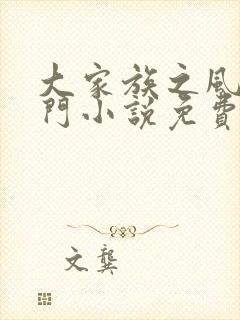 大家族之風
門小說免費
文龔